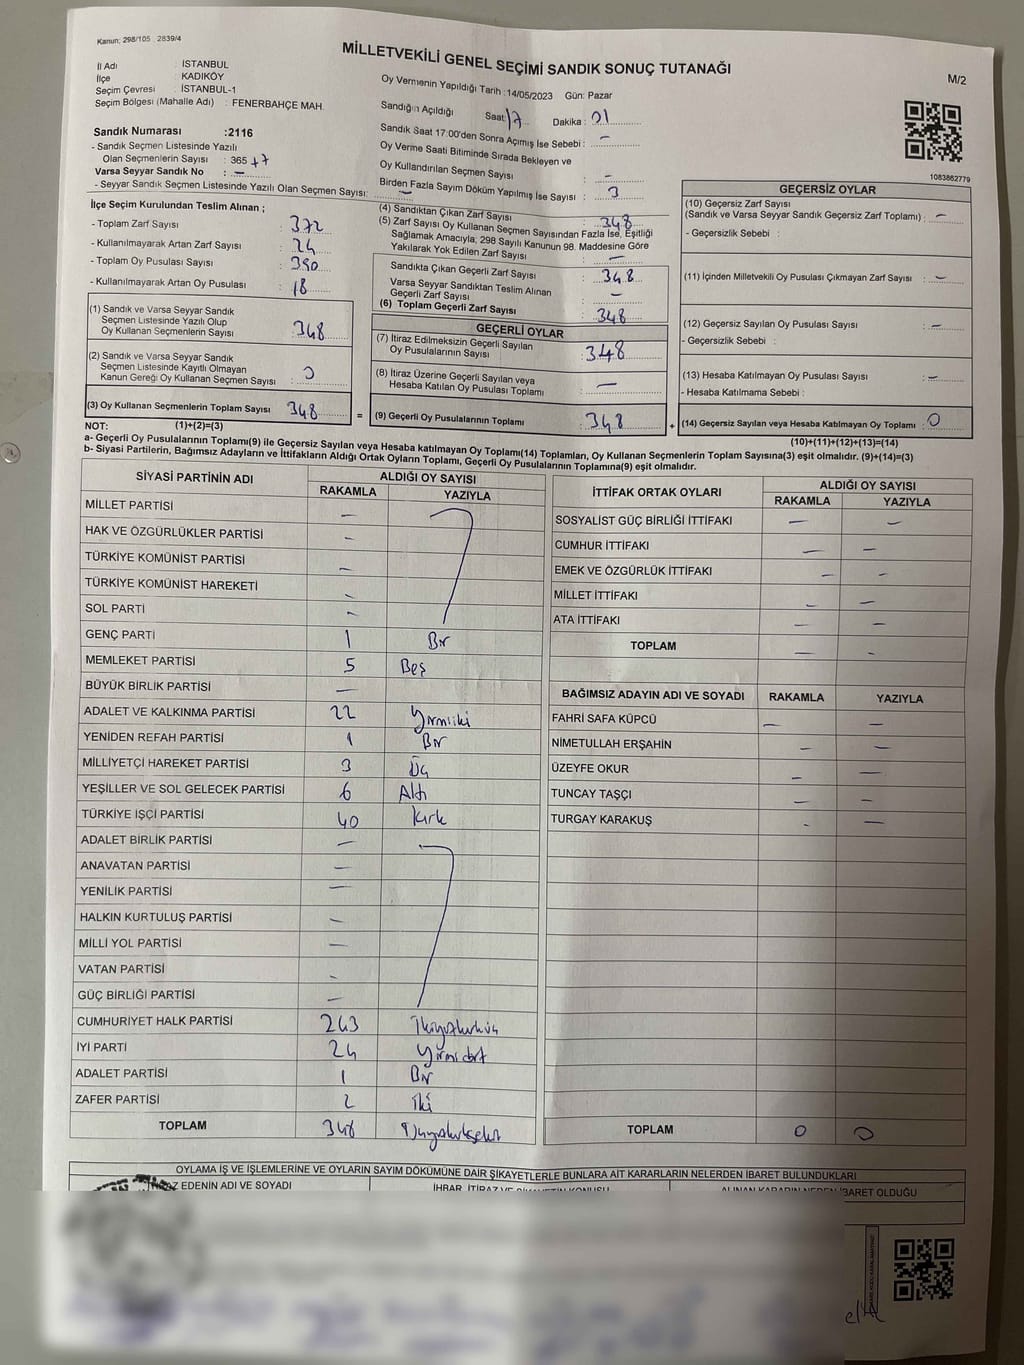 Kanun: 298/105 2839/4
MİLLETVEKİLİ GENEL SEÇİMİ SANDIK SONUÇ TUTANAĞI
M/2
İl Adı : İSTANBUL
İlçe : KADIKÖY
Seçim Çevresi : İSTANBUL-1
Seçim Bölgesi (Mahalle Adı) : FENERBAHÇE MAH.
Oy Vermenin Yapıldığı Tarih :14/05/2023 Gün: Pazar
Sandığın Açıldığı Saat: 17 Dakika : 01
Sandık Saat 17:00'den Sonra Açımış İse Sebebi : -
Oy Verme Saati Bitiminde Sırada Bekleyen ve
Oy Kullandırılan Seçmen Sayısı : -
Birden Fazla Sayım Döküm Yapılmış İse Sayısı : 3
Sandık Numarası :2116
- Sandık Seçmen Listesinde Yazılı
Olan Seçmenlerin Sayısı : 365 +7
Varsa Seyyar Sandık No : -
- Seyyar Sandık Seçmen Listesinde Yazılı Olan Seçmen Sayısı: -
1083862779
İlçe Seçim Kurulundan Teslim Alınan ;
- Toplam Zarf Sayısı : 372
- Kullanılmayarak Artan Zarf Sayısı : 24
- Toplam Oy Pusulası Sayısı : 390
- Kullanılmayarak Artan Oy Pusulası : 18
(1) Sandık ve Varsa Seyyar Sandık
Seçmen Listesinde Yazılı Olup
Oy Kullanan Seçmenlerin Sayısı : 348
(2) Sandık ve Varsa Seyyar Sandık
Seçmen Listesinde Kayıtlı Olmayan
Kanun Gereği Oy Kullanan Seçmen Sayısı :
(3) Oy Kullanan Seçmenlerin Toplam Sayısı 348
(4) Sandıktan Çıkan Zarf Sayısı : 348
(5) Zarf Sayısı Oy Kullanan Seçmen Sayısından Fazla İse, Eşitliği
Sağlamak Amacıyla; 298 Sayılı Kanunun 98. Maddesine Göre
Yakılarak Yok Edilen Zarf Sayısı : -
Sandıkta Çıkan Geçerli Zarf Sayısı : 348
Varsa Seyyar Sandıktan Teslim Alınan
Geçerli Zarf Sayısı : -
(6) Toplam Geçerli Zarf Sayısı : 348
GEÇERLİ OYLAR
(7) İtiraz Edilmeksizin Geçerli Sayılan
Oy Pusulalarının Sayısı : 348
(8) İtiraz Üzerine Geçerli Sayılan veya
Hesaba Katılan Oy Pusulası Toplamı : -
= (9) Geçerli Oy Pusulalarının Toplamı : 348
GEÇERSİZ OYLAR
(10) Geçersiz Zarf Sayısı
(Sandık ve Varsa Seyyar Sandık Geçersiz Zarf Toplamı) : -
- Geçersizlik Sebebi :
(11) İçinden Milletvekili Oy Pusulası Çıkmayan Zarf Sayısı : -
(12) Geçersiz Sayılan Oy Pusulası Sayısı : -
- Geçersizlik Sebebi :
(13) Hesaba Katılmayan Oy Pusulası Sayısı : -
- Hesaba Katılmama Sebebi :
+ (14) Geçersiz Sayılan veya Hesaba Katılmayan Oy Toplamı : 0
NOT: (1)+(2)=(3)
(10)+(11)+(12)+(13)=(14)
a- Geçerli Oy Pusulalarının Toplamı(9) ile Geçersiz Sayılan veya Hesaba katılmayan Oy Toplamı(14) Toplamları, Oy Kullanan Seçmenlerin Toplam Sayısına(3) eşit olmalıdır. (9)+(14)=(3)
b- Siyasi Partilerin, Bağımsız Adayların ve İttifakların Aldığı Ortak Oyların Toplamı, Geçerli Oy Pusulalarının Toplamına(9) eşit olmalıdır.
SİYASİ PARTİNİN ADI ALDIĞI OY SAYISI
RAKAMLA YAZIYLA
MİLLET PARTİSİ -
HAK VE ÖZGÜRLÜKLER PARTİSİ -
TÜRKİYE KOMÜNİST PARTİSİ -
TÜRKİYE KOMÜNİST HAREKETİ -
SOL PARTİ -
GENÇ PARTİ 1 Bir
MEMLEKET PARTİSİ 5 Beş
BÜYÜK BİRLİK PARTİSİ -
ADALET VE KALKINMA PARTİSİ 22 Yirmiiki
YENİDEN REFAH PARTİSİ 1 Bir
MİLLİYETÇİ HAREKET PARTİSİ 3 Üç
YEŞİLLER VE SOL GELECEK PARTİSİ 6 Altı
TÜRKİYE İŞÇİ PARTİSİ 40 Kırk
ADALET BİRLİK PARTİSİ -
ANAVATAN PARTİSİ -
YENİLİK PARTİSİ -
HALKIN KURTULUŞ PARTİSİ -
MİLLİ YOL PARTİSİ -
VATAN PARTİSİ -
GÜÇ BİRLİĞİ PARTİSİ -
CUMHURİYET HALK PARTİSİ 243 İkiyüzkırküç
İYİ PARTİ 24 Yirmidört
ADALET PARTİSİ 1 Bir
ZAFER PARTİSİ 2 İki
TOPLAM 348 Üçyüzkırksekiz
İTTİFAK ORTAK OYLARI ALDIĞI OY SAYISI
RAKAMLA YAZIYLA
SOSYALİST GÜÇ BİRLİĞİ İTTİFAKI - -
CUMHUR İTTİFAKI - -
EMEK VE ÖZGÜRLÜK İTTİFAKI - -
MİLLET İTTİFAKI - -
ATA İTTİFAKI - -
TOPLAM - -
BAĞIMSIZ ADAYIN ADI VE SOYADI RAKAMLA YAZIYLA
FAHRİ SAFA KÜPCÜ - -
NİMETULLAH ERŞAHİN - -
ÜZEYFE OKUR - -
TUNCAY TAŞÇI - -
TURGAY KARAKUŞ - -
TOPLAM 0 0
OYLAMA İŞ VE İŞLEMLERİNE VE OYLARIN SAYIM DÖKÜMÜNE DAİR ŞİKAYETLERLE BUNLARA AİT KARARLARIN NELERDEN İBARET BULUNDUKLARI
EDENİN ADI VE SOYADI İHBAR, İTİRAZ VE ŞİKAYETİN KONUSU ALINAN KARARIN NEDEN İBARET OLDUĞU